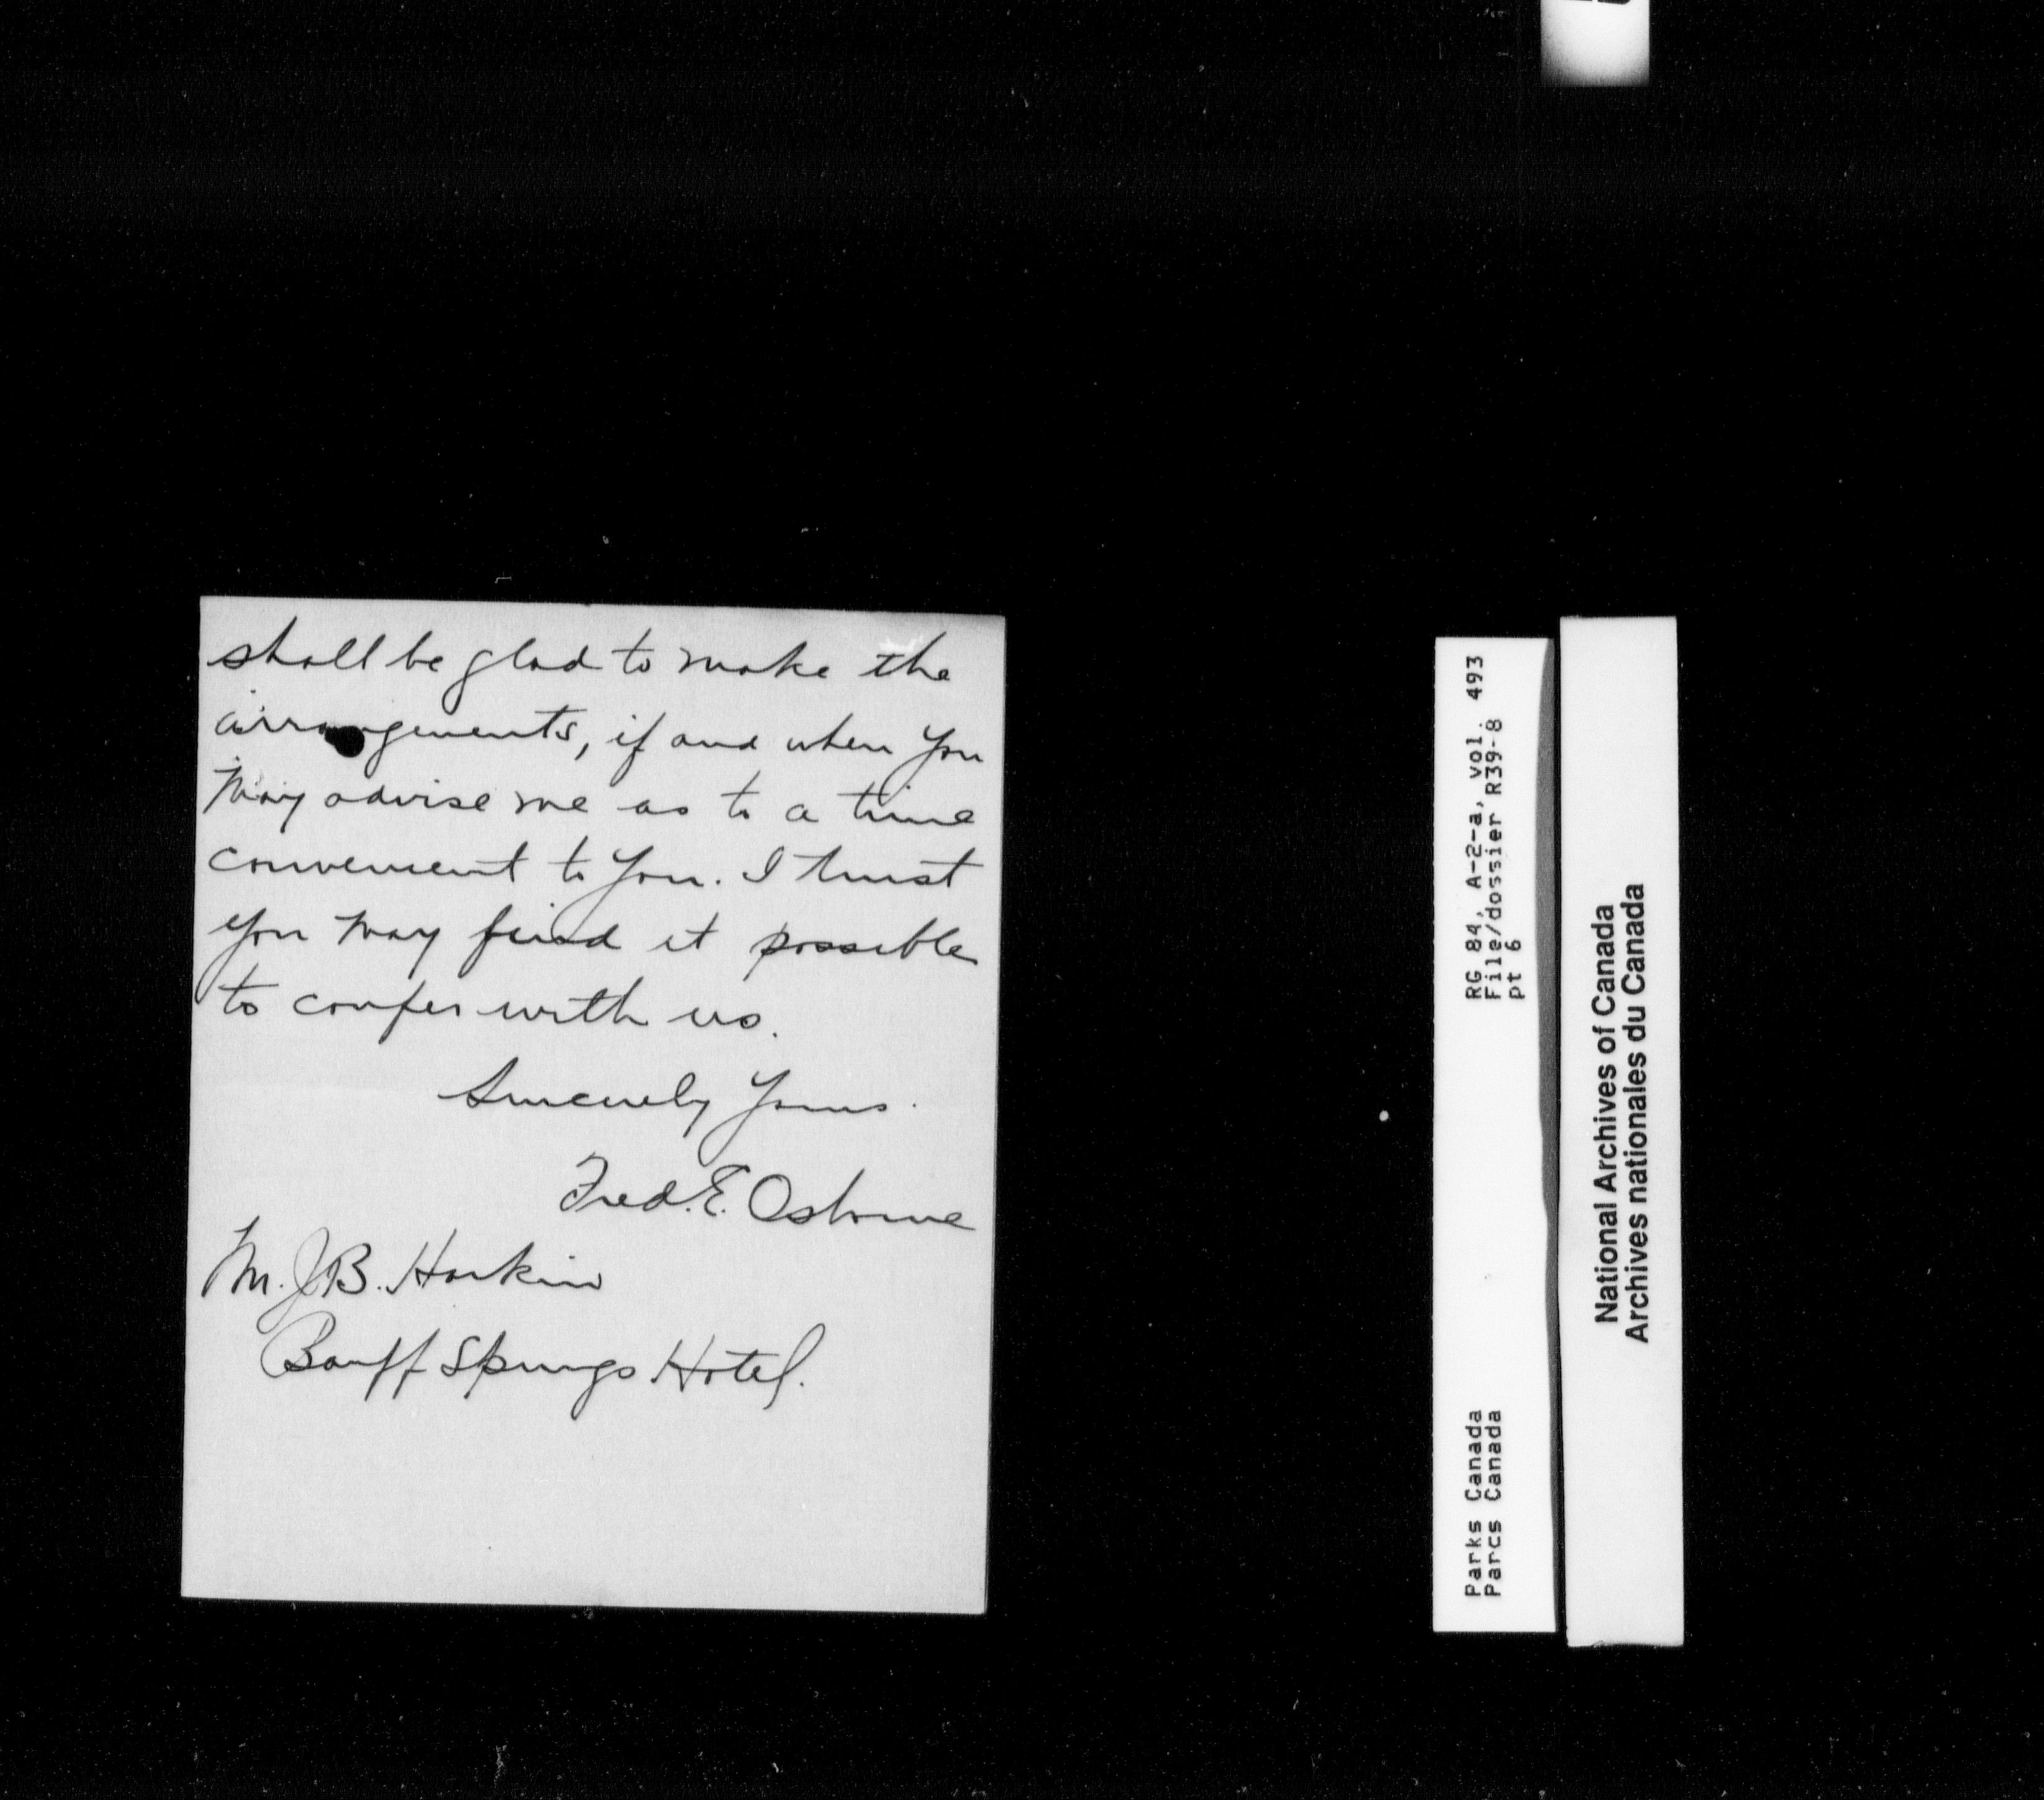 shall be glad to make the
arrangements, if and when you
may advise me as to a time
convenient to you. I trust
you may find it possible
to confer with us.
Sincerely Yours.
Fred. E. Osborne
M. J.B. Harkin
Banff Springs Hotel.
RG 84, A-2-a, vol. 493
File/dossier R39-8
pt 6
Parks Canada
Parcs Canada
National Archives of Canada
Archives nationales du Canada